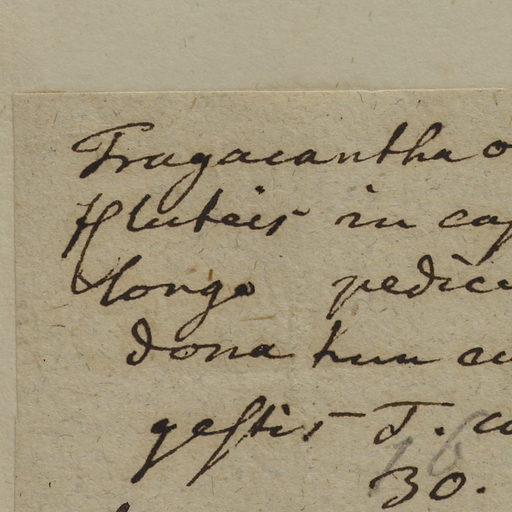 Tragacantha o
fl luteis in cap
longo pedicu
dona hun cu
gestis T. co
30.